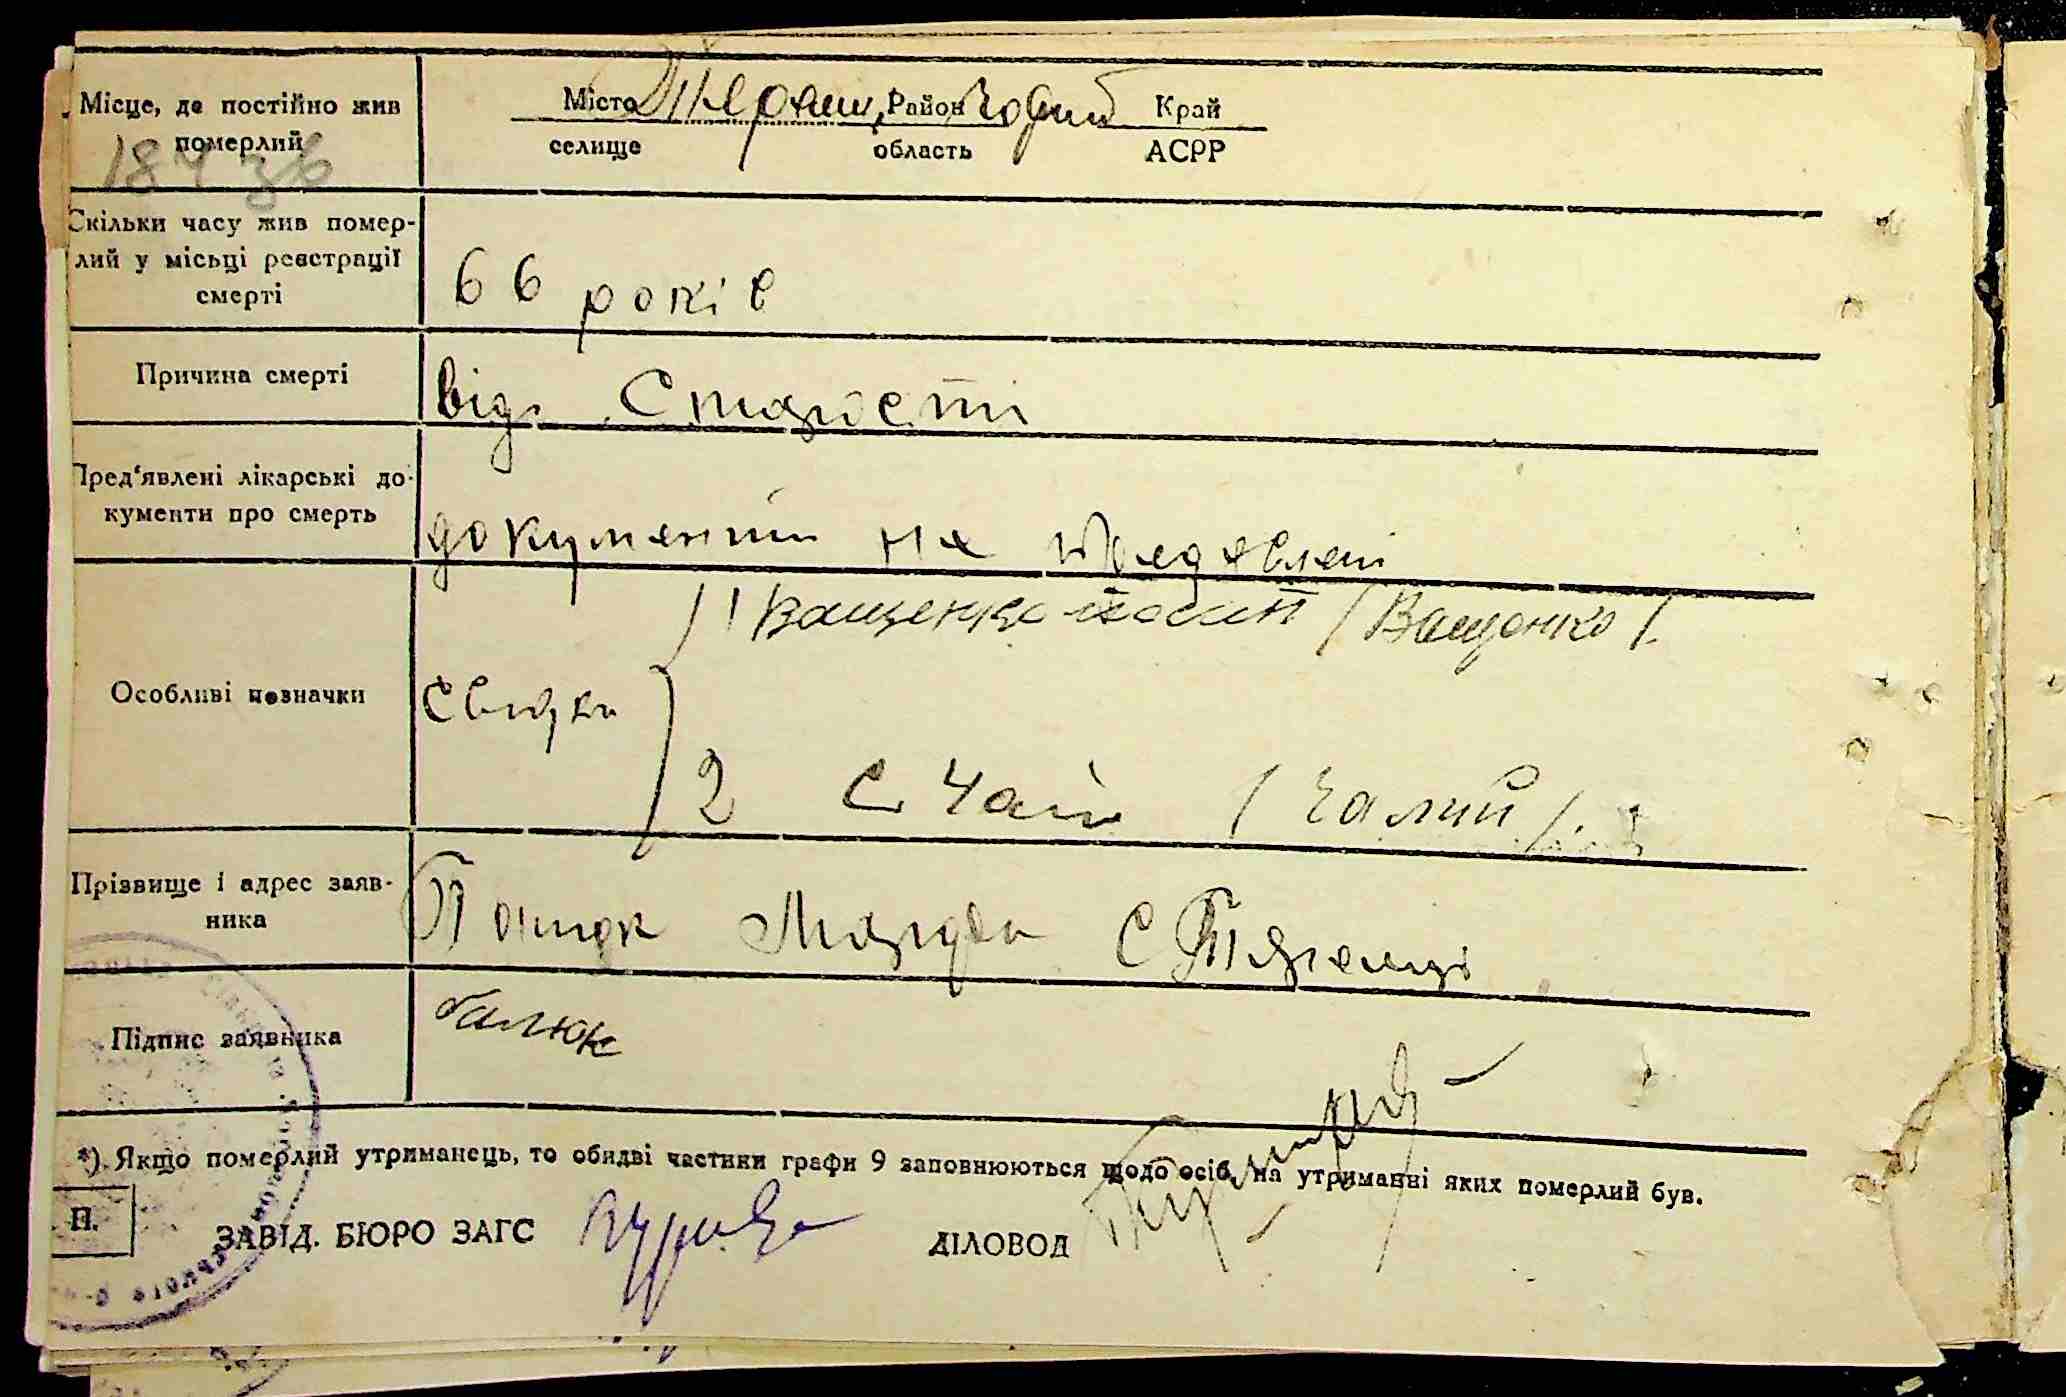 Місце, де постійно жив
померлий
184 зв
Місто Район Край
селище область АСРР
Скільки часу жив помер-
лий у місьці реєстрації
смерті
66 років
Причина смерті
від Старості
Пред‘явлені лікарські до-
кументи про смерть
документи не предявлені
Особливі позначки
Свидки
1 Ващенко /Ващенко/.
2 С Чалй /Чалий/.
Прізвище і адрес заяв-
ника
С
Підпис заявника
балюк
*) Якщо померлий утриманець, то обидві частини графи 9 заповнюються щодо осіб, на утриманні яких померлий був.
П.
ЗАВІД. БЮРО ЗАГС
ДІЛОВОД